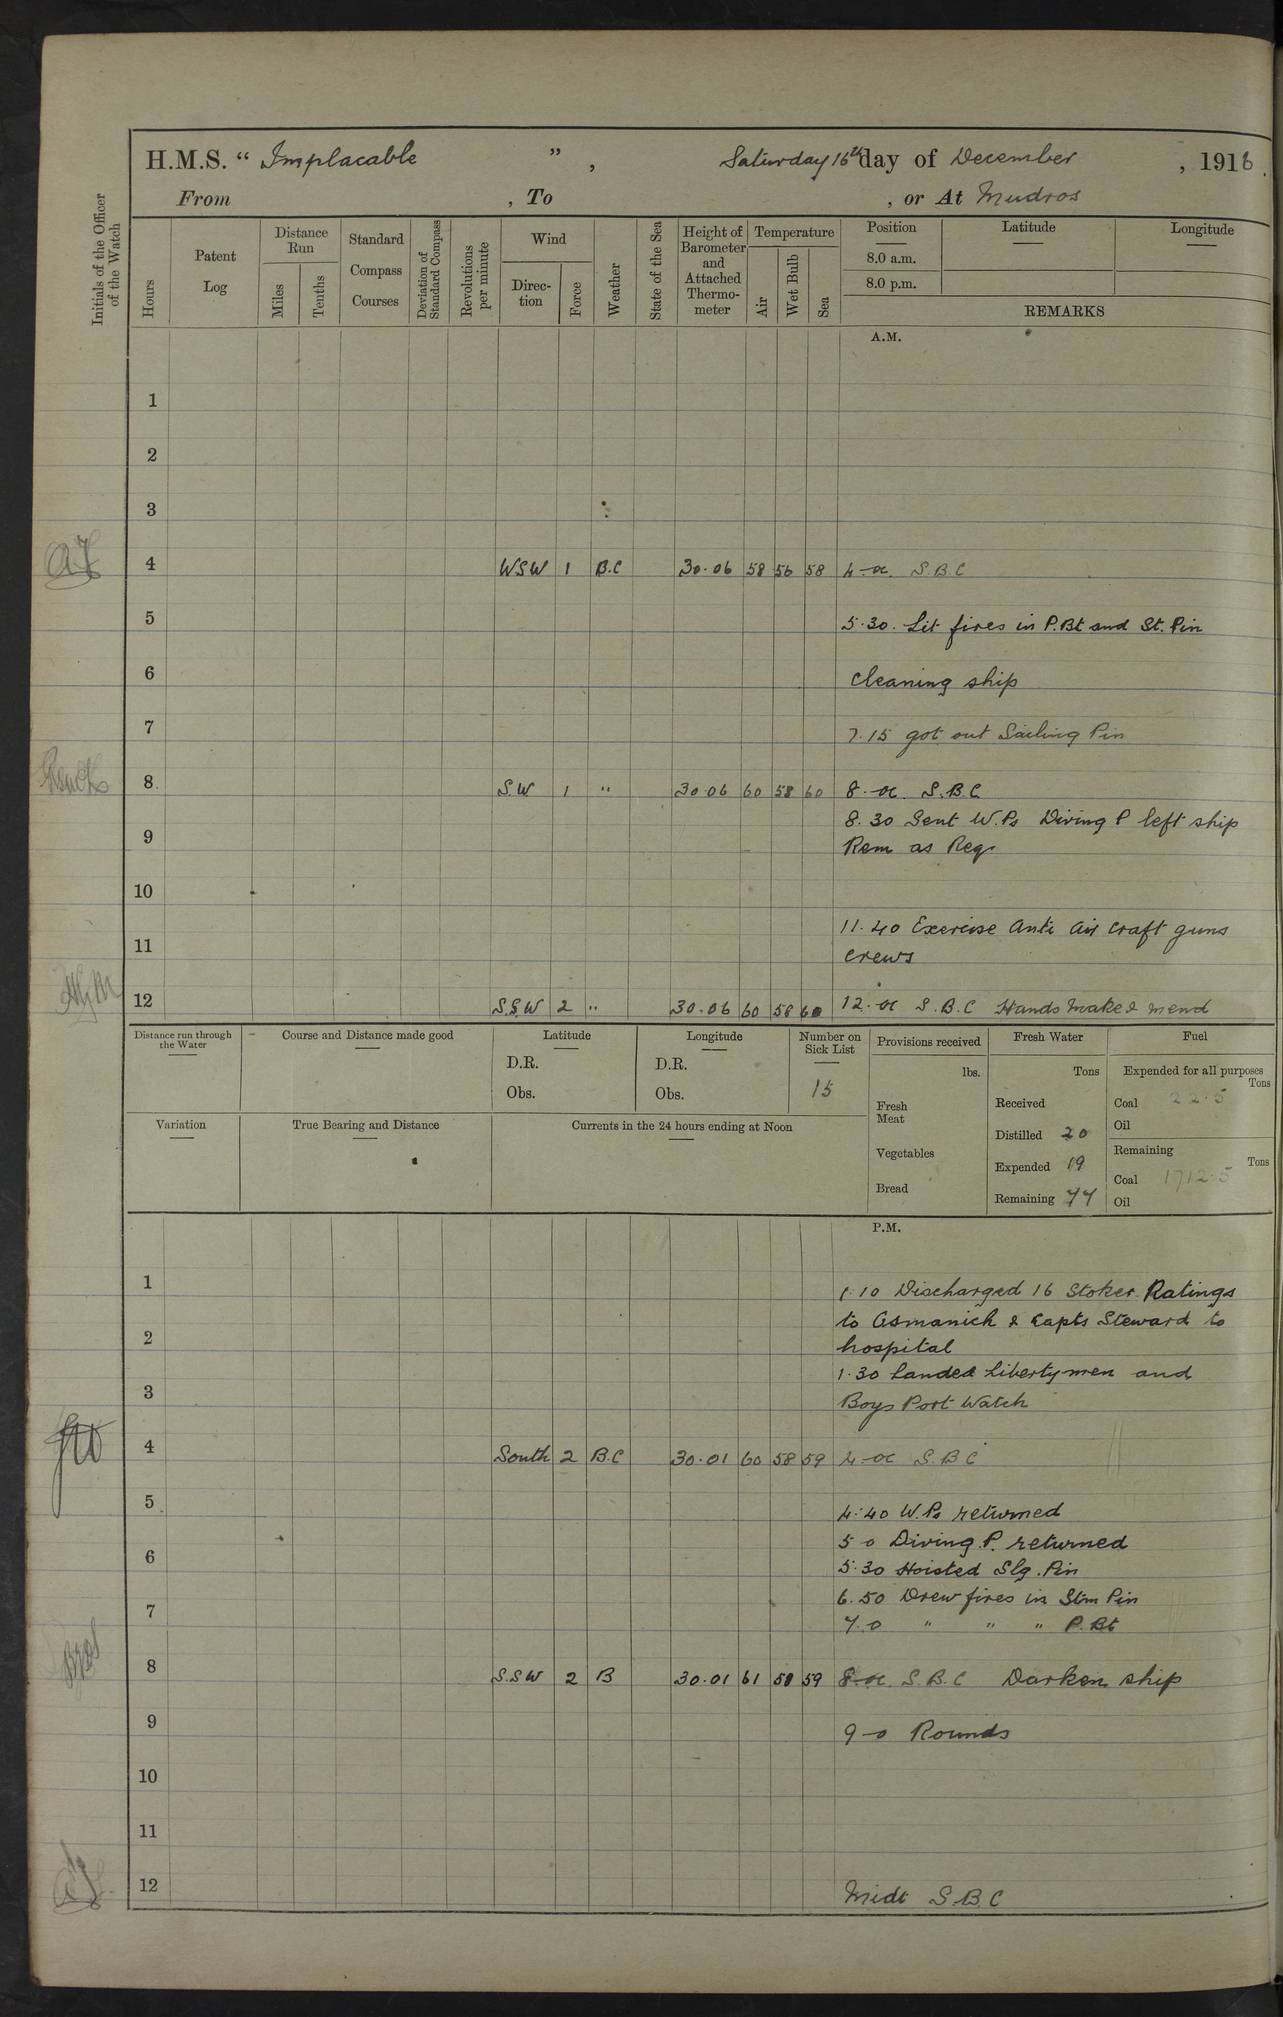 H.M.S. “ Implacable ” , Saturday 16th day of December , 1916.
From , To , or At Mudros
Initials of the Officer of the Watch
Hours
Patent Log
Distance Run
Miles
Tenths
Standard Compass Courses
Deviation of Standard Compass
Revolutions per minute
Wind
Direc-tion
Force
Weather
State of the Sea
Height of Barometer and Attached Thermo-meter
Temperature
Air
Wet Bulb
Sea
Position
8.0 a.m.
8.0 p.m.
Latitude
Longitude
REMARKS
A.M.
1
2
3
4 WSW 1 B.C 30.06 58 56 58 4-oc S.B.C
5 5.30. Lit fires in P.Bt and St. Pin
6 Cleaning ship
7 7.15 got out Sailing Pin
8 S.W 1 " 30.06 60 58 60 8-oc S.B.C.
8.30 Sent W.Ps Diving P left ship
9 Rem as Reqr
10
11.40 Exercise Anti Air craft guns
11 crews
12 S.S.W 2 " 30.06 60 58 60 12-oc S.B.C Hands Make & mend
Distance run through the Water
Course and Distance made good
Latitude
D.R.
Obs.
Longitude
D.R.
Obs.
Number on Sick List
15
Provisions received
lbs.
Fresh Meat
Vegetables
Bread
Fresh Water
Tons
Received
Distilled 20
Expended 19
Remaining 77
Fuel
Expended for all purposes
Tons
Coal 22.5
Oil
Remaining
Tons
Coal 1712.5
Oil
Variation
True Bearing and Distance
Currents in the 24 hours ending at Noon
P.M.
1 1.10 Discharged 16 Stoker Ratings
to Osmanieh & Capts Steward to
2 hospital
1.30 Landed Liberty men and
3 Boys Port Watch
4 South 2 B.C 30.01 60 58 59 4-oc S.B.C
5 4.40 W.Ps returned
5 0 Diving P. returned
6 5.30 Hoisted Slg. Pin
6.50 Drew fires in Stm Pin
7 7.0 " " " P.Bt
8 S.S.W 2 B 30.01 61 58 59 8-oc S.B.C Darken ship
9 9-0 Rounds
10
11
12 Midt S.B.C